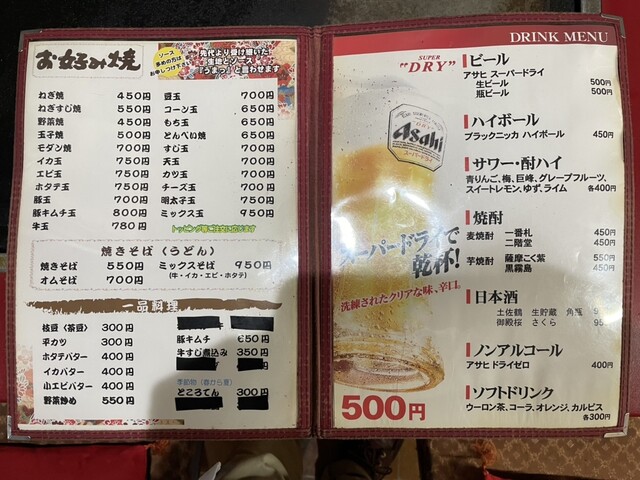 お好み焼
ソース
多めの方は
お申し下さい
先代より受け継いだ
生地とソース
「うまっ」と言わせます
ねぎ焼 450円
ねぎすじ焼 750円
野菜焼 450円
玉子焼 500円
モダン焼 700円
イカ玉 750円
エビ玉 750円
ホタテ玉 750円
豚玉 700円
豚キムチ玉 800円
牛玉 780円
豆玉 700円
コーン玉 650円
もち玉 650円
とんぺい焼 650円
すじ玉 700円
天玉 700円
カツ玉 700円
チーズ玉 700円
明太子玉 750円
ミックス玉 950円
焼きそば(うどん)
焼きそば 550円
オムそば 700円
ミックスそば 950円
(牛・イカ・エビ・ホタテ)
一品料理
枝豆〈茶豆〉 300円
平カツ 300円
ホタテバター 400円
イカバター 400円
小エビバター 400円
野菜炒め 550円
豚キムチ 650円
牛すじ煮込み 350円
季節物(春から夏)
ところてん 300円
DRINK MENU
SUPER
"DRY"
Asahi
スーパードライで
乾杯!
洗練されたクリアな味、辛口。
500円
ビール
アサヒ スーパードライ
生ビール 500円
瓶ビール 500円
ハイボール
ブラックニッカ ハイボール 450円
サワー・酎ハイ
青りんご、梅、巨峰、グレープフルーツ、
スイートレモン、ゆず、ライム 各400円
焼酎
麦焼酎 一番札 450円
二階堂 450円
芋焼酎 薩摩こく紫 550円
黒霧島 450円
日本酒
土佐鶴 生貯蔵 角瓶
御殿桜 さくら
ノンアルコール
アサヒ ドライゼロ 400円
ソフトドリンク
ウーロン茶、コーラ、オレンジ、カルピス
各300円